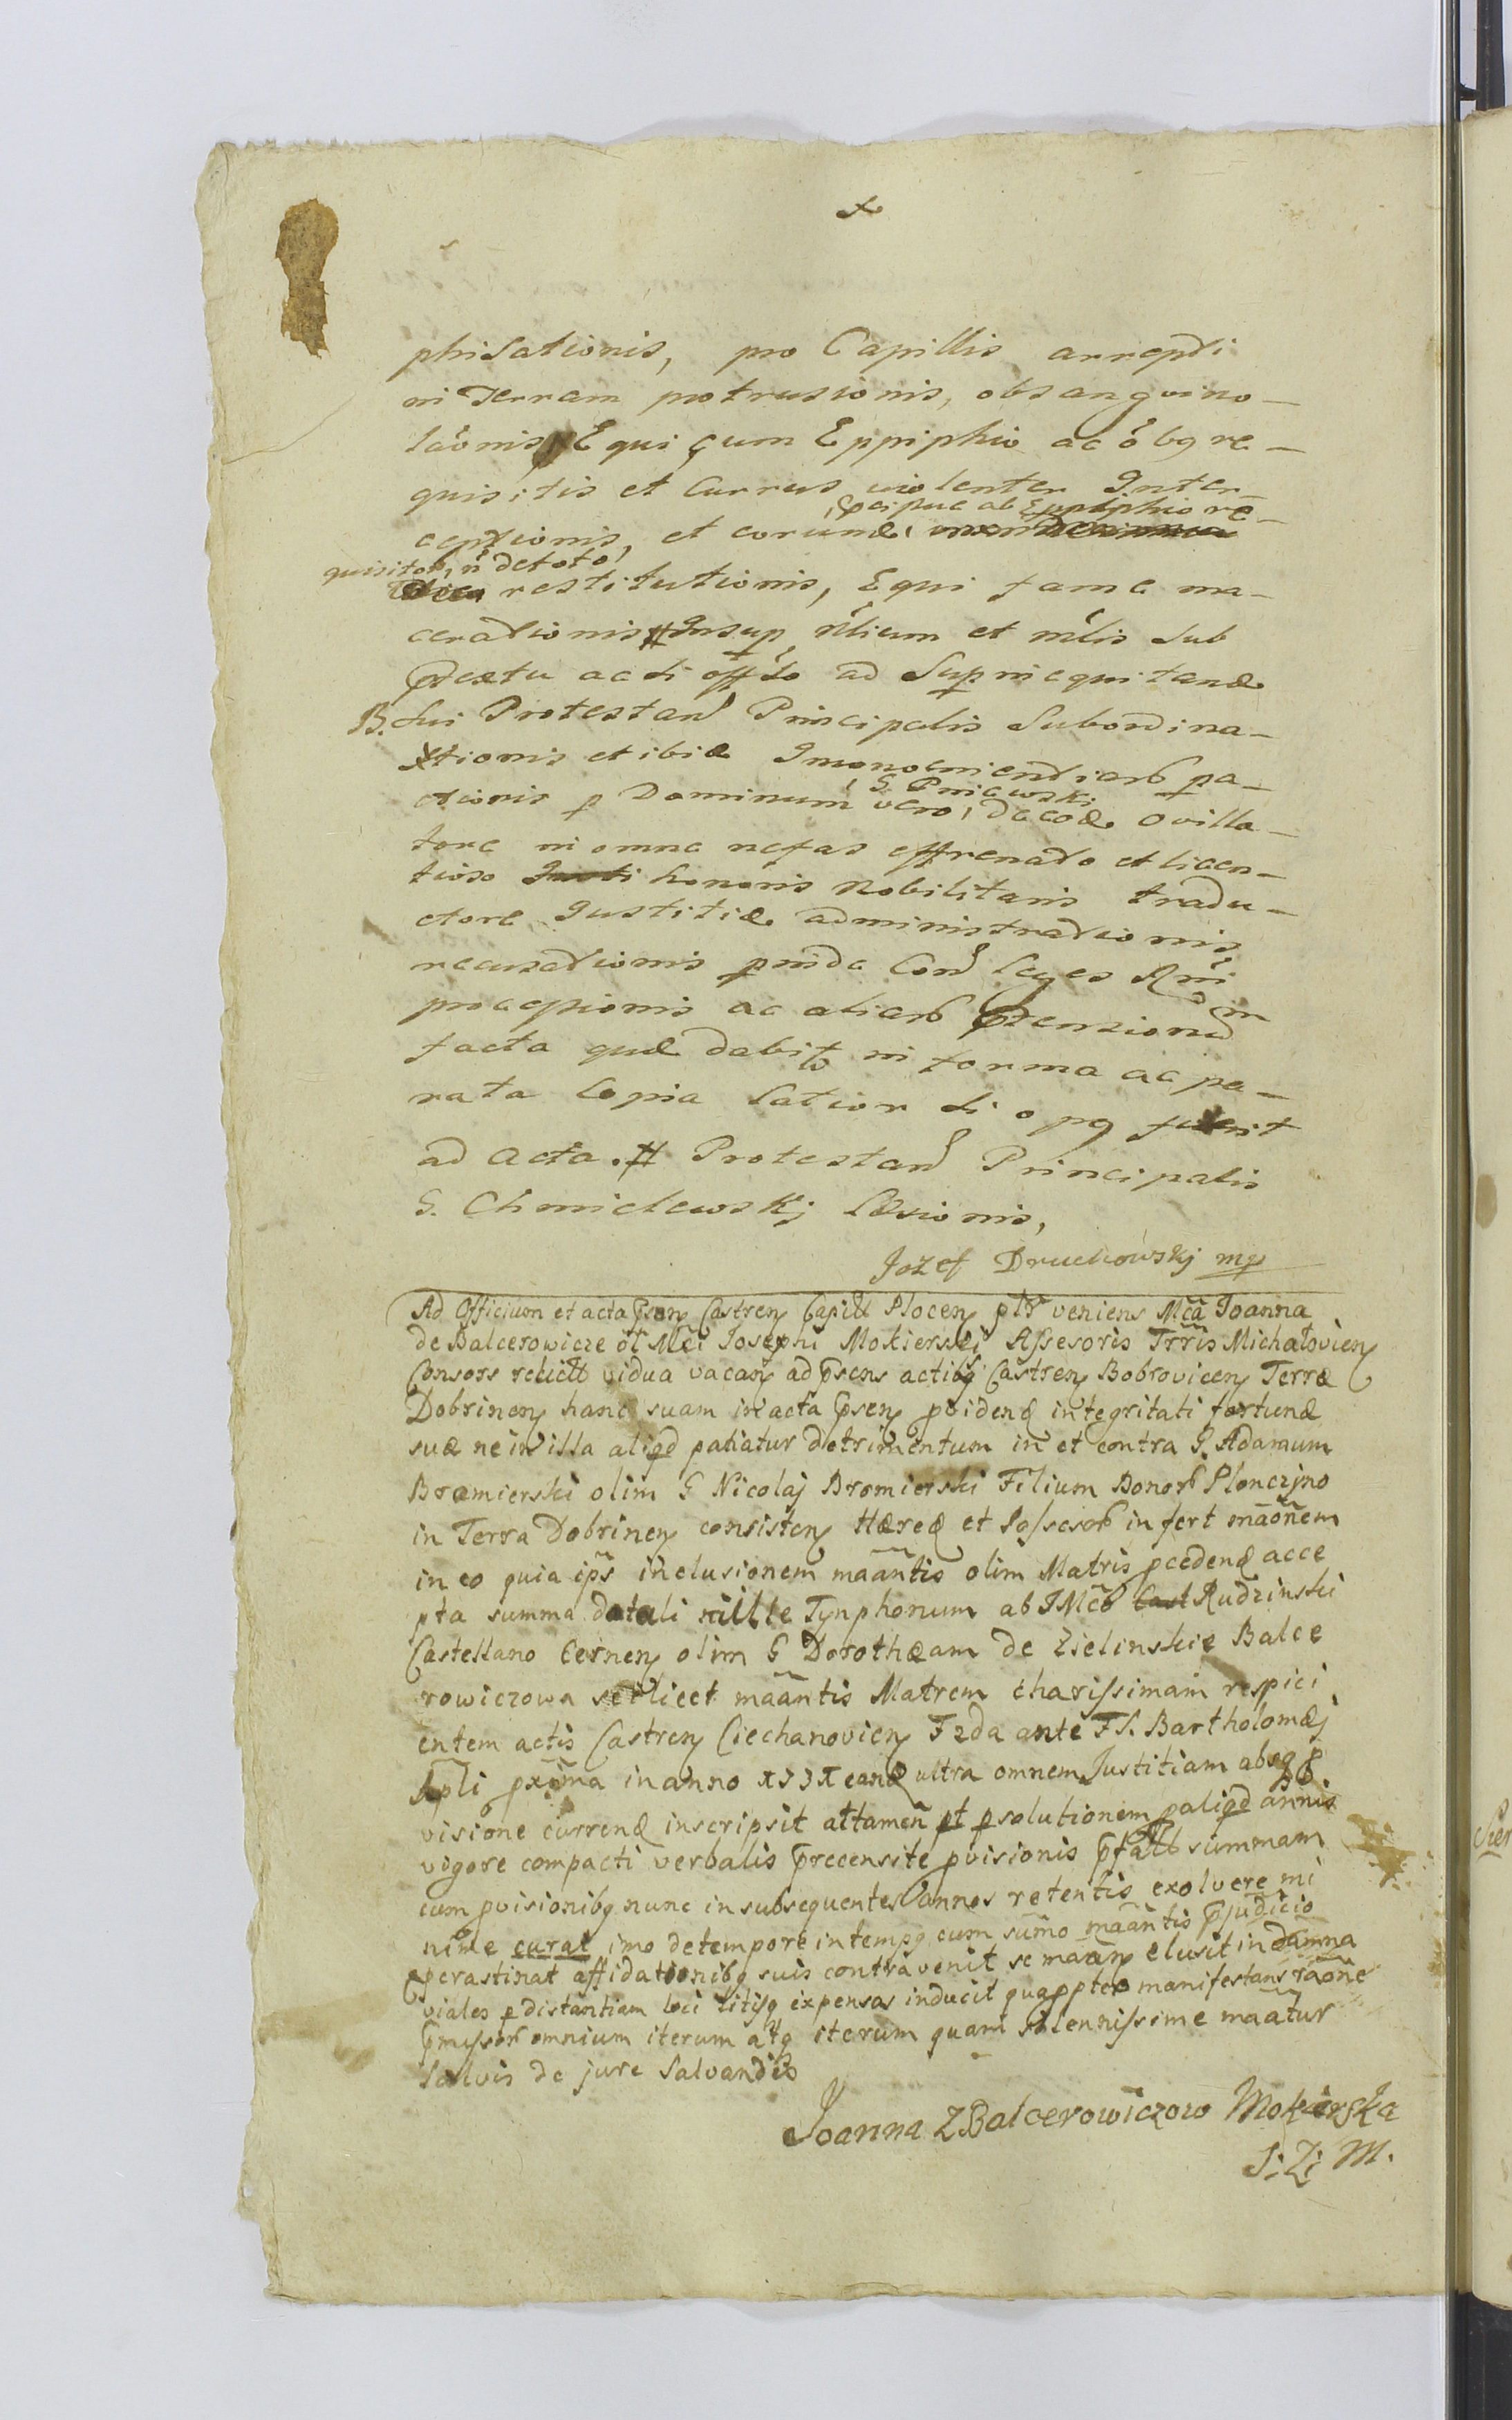 phisationis, pro Capillis arrepti
in Terram protrusionis, obsanguino-
laõnis Equi cum Eppiphio ac õbg re-
quisitis et Currus violenter Inter-
ceptionis, et eorundẽ
pcipue ab Eppiphio re-
quisitor, ñ detoto
restitutionis, Equi fame ma-
cerationis # Insup, et mĺis sub
ptextu acti offło ad Supinequitanđ
B. sui Protestanť Principalis Subordina-
tionis et ibiđ pa-
ctionis p Dominum vero, G. Pniewski de eod. ovilla-
tore in omne nefas effrenato et licen-
tioso honoris Nobilitaris tradu-
ctore Justitiæ administrationis,
recusationis pinde Conť leges Rñi
processionis ac alior ptensionũ in
facta quæ dabit in forma ac pa-
rata Copia latior si opg fuerit
ad acta. # Protestanť Principalis
G. Chmielewskj læsionis,
Jozef Druchowskj mp
Ad Officium et acta psen Castren Capitł Plocen pltr veniens Mcã Joanna
de Balcerowicze oł Mci Josephi Mokierski Assesoris Trris Michałovien
Consors relictt vidua vacan ad psens actibg Castren Bobrovicen Terræ
Dobrinen hanc suam in acta psen pvidenđ integritati fortunæ
suæ ne in illa aliqd patiatur detrimentum in et contra G. Adamum
Bromierski olim G Nicolaj Bromierski Filium Bonor Płonczyno
in Terra Dobrinen consisten Hæređ et Possesor infert mãõnem
in eo quia ips inclusionem maãntis olim Matris pcedenđ acce
pta summa dotali mille Tynphorum ab IMco Cast Rudzinski
Castellano Cernen olim G Dorothæam de Zielinskie Balce
rowiczowa scilicet maãntis Matrem charissimam respici
entem actis Castren Ciechanovien F2da ante FS. Bartholomæj
Apli pxima in anno eanđ ultra omnem Justitiam absq p
visione currenđ inscripsit attamen pt psolutionem p aliqd annis
vigore compacti verbalis precensite pvisionis pfatt summam
cum pvisionibg nunc in subsequentes annos retentis exolvere mi
nime curat imo de tempore in tempg cum sumo maãntis pjudicio
pcrastinat affidationibg suis contravenit se maãn elusit in damna
viales p distantiam loci litisg expensas inducit quappter manifestans raõne
pmissor omnium iterum atg iterum quam solennissime maãtur
Salvis de jure Salvandis
Joanna Z Balcerowiczow Mokierska
S. Z; M.